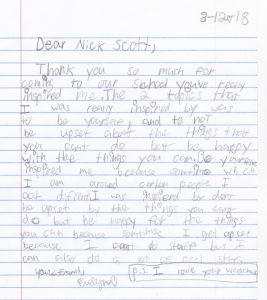 3-12-18
Dear Nick Scott,
Thank you so much for
coming to our school you've really
inspired me. The 2 topics that
I was really inspired by was
to be yourself, and to not
be upset about the things that
you cant do but be happy
with the things you can. Be yourself
inspired me because sometimes when
I am around certain people I
act difrent. I was inspired by dont
be upset by the things you cant
do but be happy for the things
you can because somtimes I get upset
because I cant do stuff but I
can also do a lot of cool stuff.
p.s. I love your wheelchair